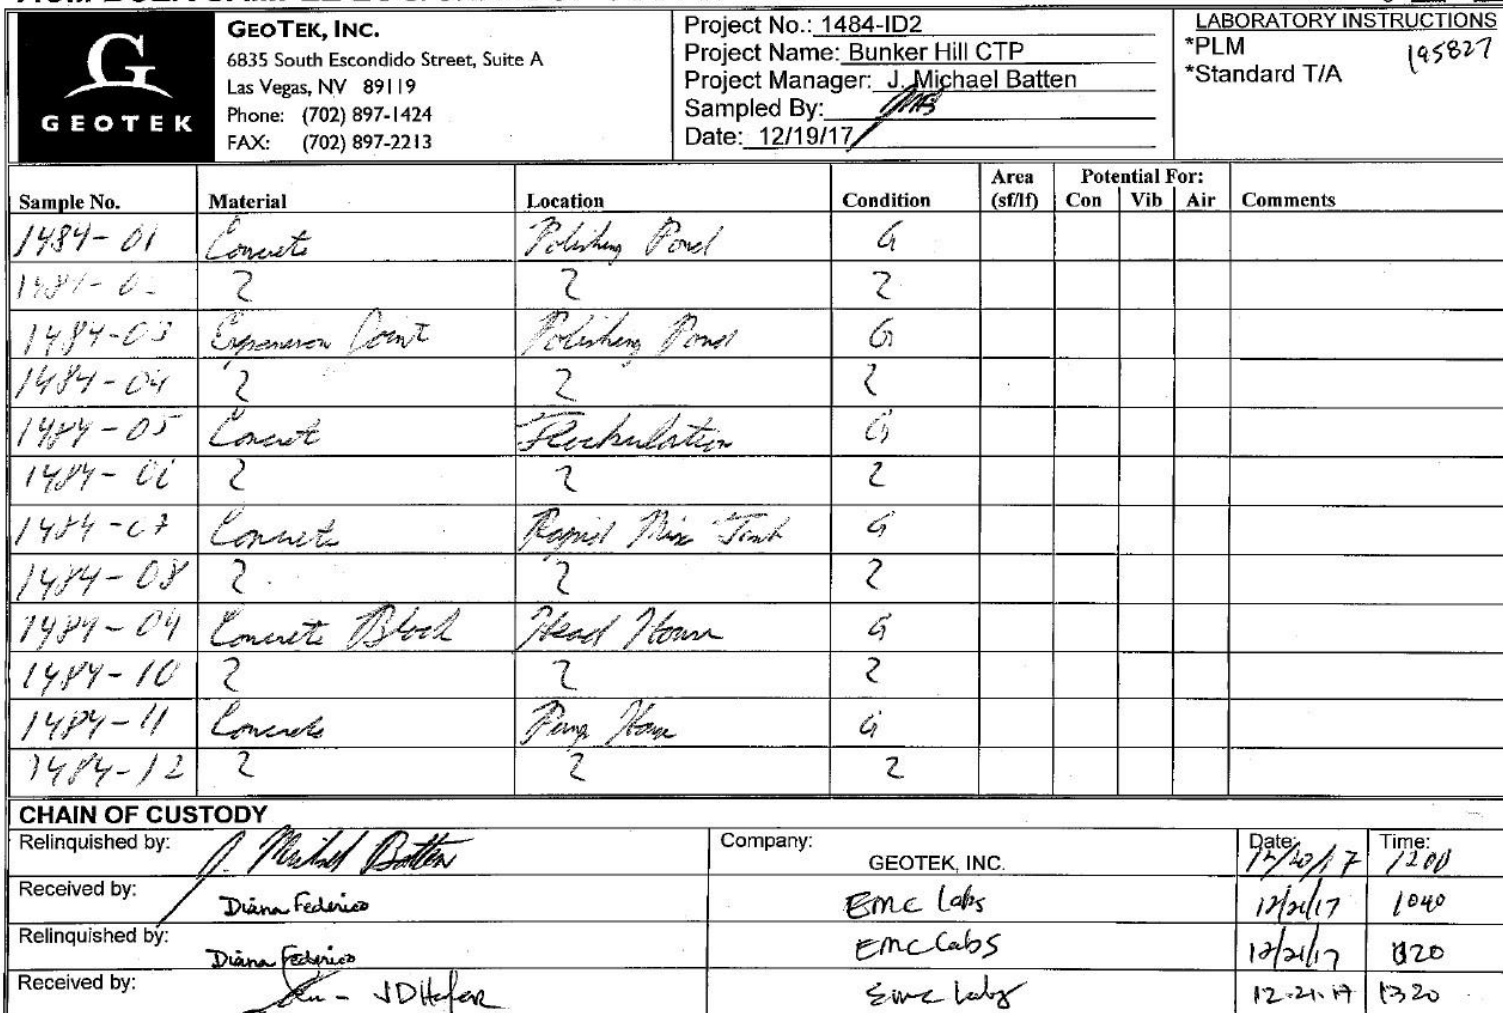 GEOTEK
GEOTEK, INC.
6835 South Escondido Street, Suite A
Las Vegas, NV 89119
Phone: (702) 897-1424
FAX: (702) 897-2213
Project No.: 1484-ID2
Project Name: Bunker Hill CTP
Project Manager: J. Michael Batten
Sampled By: JMB
Date: 12/19/17
LABORATORY INSTRUCTIONS
*PLM 195827
*Standard T/A
Sample No. Material Location Condition Area (sf/lf) Potential For: Con Vib Air Comments
1484-01 Concrete Polishing Pond G
1484-0 2 2 2
1484-03 Expansion Joint Polishing Pond G
1484-04 2 2 2
1484-05 Concrete Flockulation G
1484-06 2 2 2
1484-07 Concrete Rapid Mix Tank G
1484-08 2 2 2
1484-09 Concrete Block Head House G
1484-10 2 2 2
1484-11 Concrete Pump House G
1484-12 2 2 2
CHAIN OF CUSTODY
Relinquished by: J. Michael Batten Company: GEOTEK, INC. Date: 12/20/17 Time: 1200
Received by: Diana Federico EMC Labs 12/21/17 1040
Relinquished by: Diana Federico EMC Labs 12/21/17 1320
Received by: JD Hefer EMC Labs 12-21-17 1320